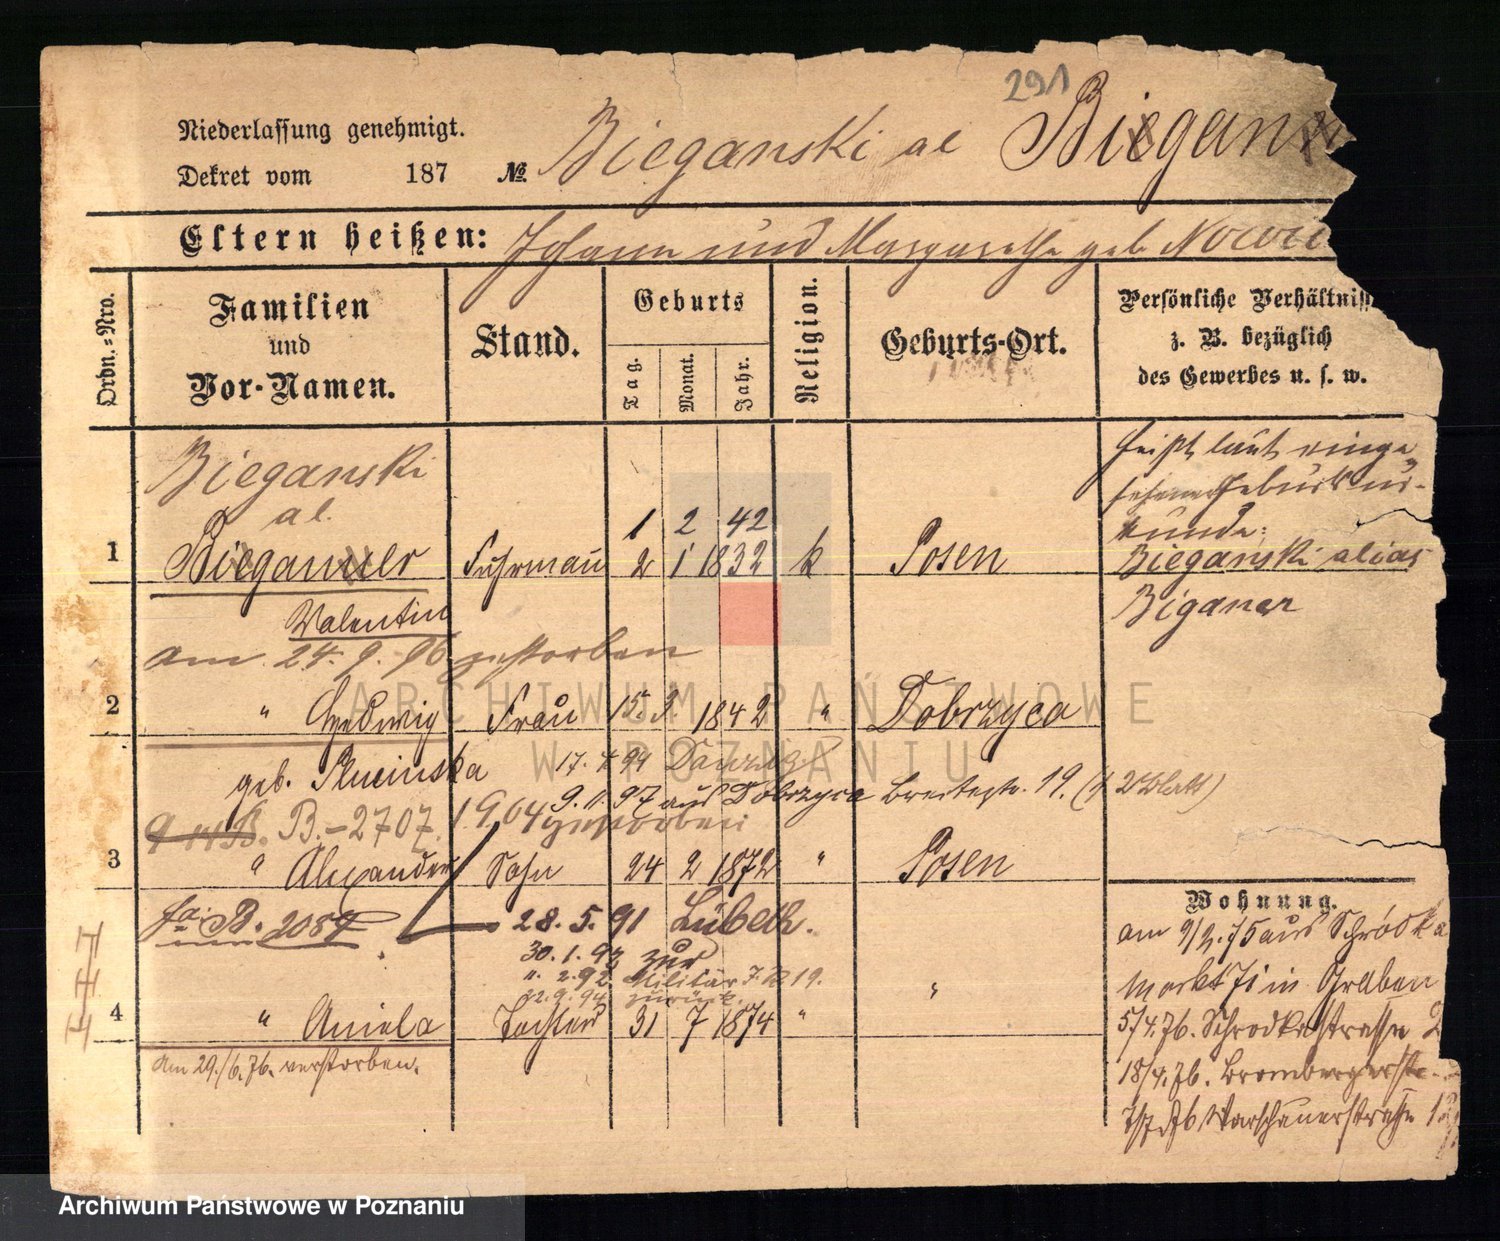 291
Niederlassung genehmigt.
Dekret vom 187 №
Bieganski al Biegan
Eltern heißen: Johann und Margarethe geb Nowic
Ordn.=Nro.
Familien
und
Vor-Namen.
Stand.
Geburts
Tag.
Monat.
Jahr.
Religion.
Geburts-Ort.
Persönliche Verhältniss
z. B. bezüglich
des Gewerbes u. s. w.
Bieganski
al.
1 2 42
1 Bieganer Fuhrmann 2 1 1832 k Posen
Valentin
am 24.9.96 gestorben
heißt laut einge
sehener Geburtsur-
kunde:
Bieganski alias
Biganer
2 " Hedwig Frau 15. 3. 1842 " Dobrzyca
geb.
17. 4 94 Danzig
9. 11. 97 aus Dobrzyca Breitestr. 19. (2 Blatt)
B.-2707. 1904 gestorben
3 " Alexander Sohn 24 2 1872 " Posen
B. 2089
28.5.91 Lübeck.
30.1.92 zur
2.92 Militär 7. 19.
22.9.94 zurück.
4 " Aniela Tochter 31 7 1874 " "
am 29./6.76. verstorben.
Wohnung.
am 9/2.75 aus Schrodka
Markt 71 in Graben
5/4.76. Schrodkastrasse 2
18/4.76. Brombergerstr.
7/7 76 Warschauerstrasse
ARCHIWUM PAŃSTWOWE
W POZNANIU
Archiwum Państwowe w Poznaniu